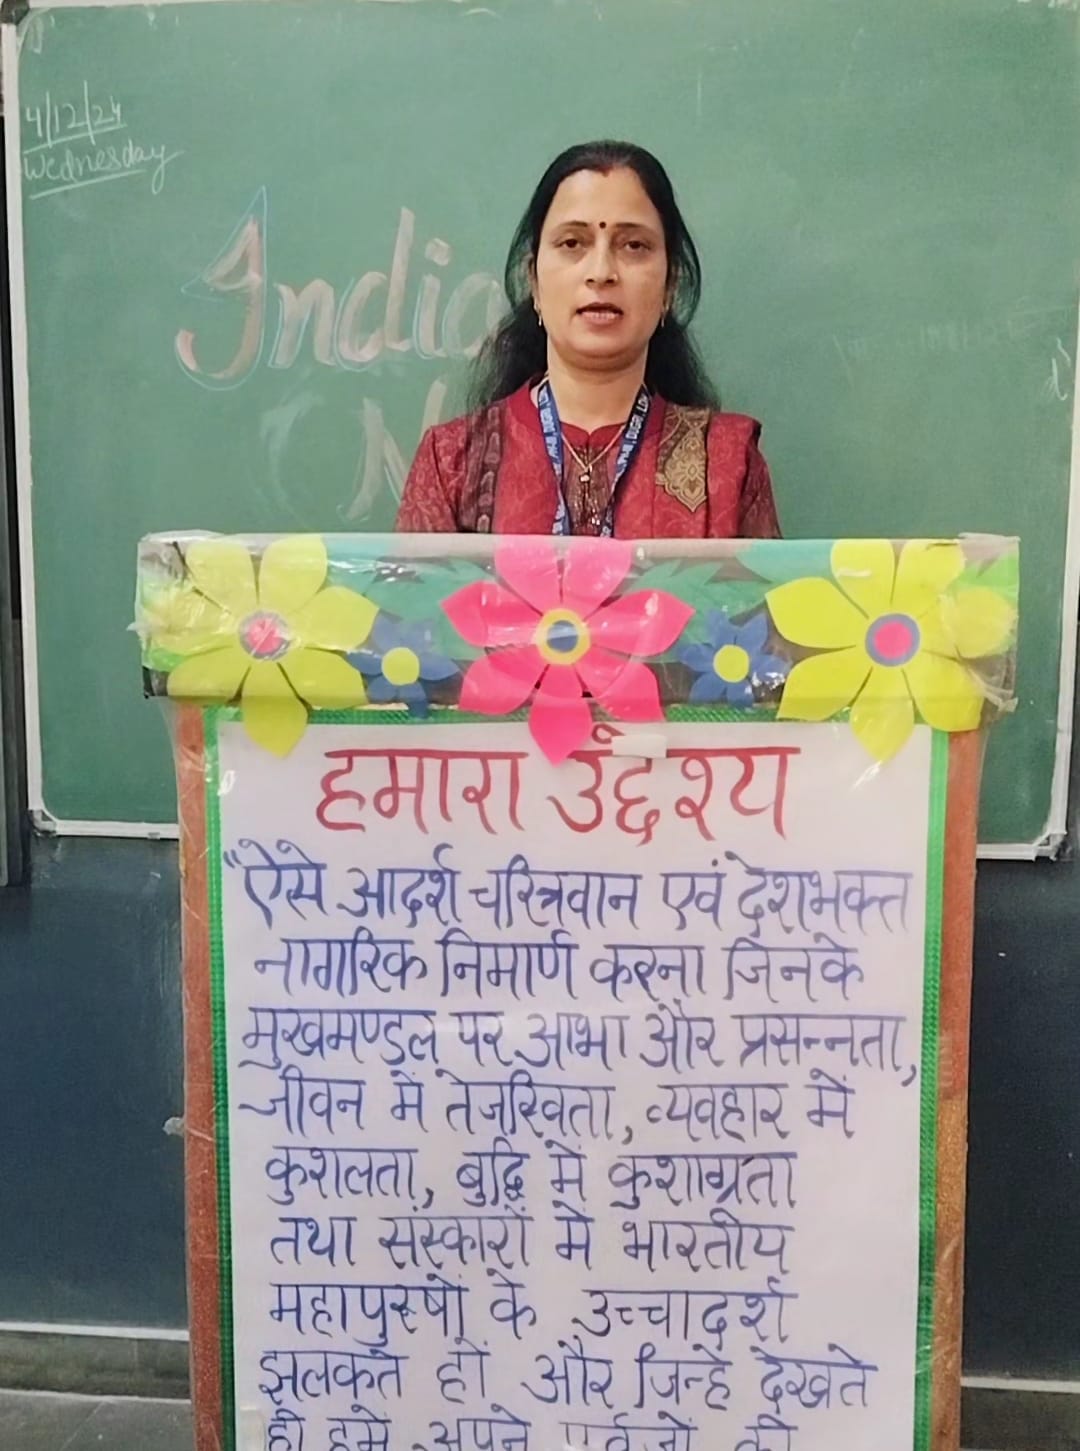 4/12/24
Wednesday
India
N
DUGRI, LDH
हमारा उद्देश्य
"ऐसे आदर्श चरित्रवान एवं देशभक्त
नागरिक निमार्ण करना जिनके
मुखमण्डल पर आभा और प्रसन्नता,
जीवन में तेजस्विता, व्यवहार में
कुशलता, बुद्धि में कुशाग्रता
तथा संस्कारों में भारतीय
महापुरूषों के उच्चादर्श
झलकते हों और जिन्हे देखते
ही हमें अपने पूर्वजों की